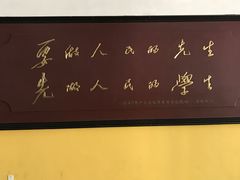 要做人民的先生
先做人民的學生